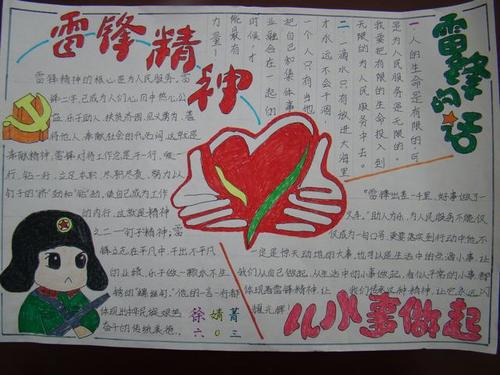 雷锋精神
雷锋精神的核心是为人民服务。雷
锋二字,已成为人们心目中热心公
益,乐于助人,扶贫济困,见义勇为,善
待他人,奉献社会的代名词。这就是
奉献精神。雷锋对待工作总是干一行,爱一
行,钻一行,立足本职,尽职尽责,努力以
钉子的"挤"劲和"钻"劲,使自己成为工作
的内行。这就是精神
之二一钉子精神。雷
锋立足在平凡中,干出不平凡
的业绩,乐于做一颗永不生
锈的"螺丝钉"。他的一言一行都
体现出中华民族艰苦
奋斗的传统美德。
雷锋的话
一.人的生命是有限的,可
是为人民服务是无限的,
我要把有限的生命投入到
无限的为人民服务中去。
二.一滴水只有放进大海里
才永远不会干涸,
一个人只有当他
把自己和集体事
业融合在一起的
时候,才
能最有
力量!
"雷锋出差一千里,好事做了一
火车。"助人为乐,为人民服务不能仅
仅成为一句口号,更要落实到行动中
一定是惊天动地的大事,也可以是生活中的点滴小事。让
我们从自己做起,从生活中的小事做起,看似平常的小事,都
体现着雷锋精神。让
我们传承这种精神,让它永远闪
耀光辉!
从小事做起
徐婧菁
六0三